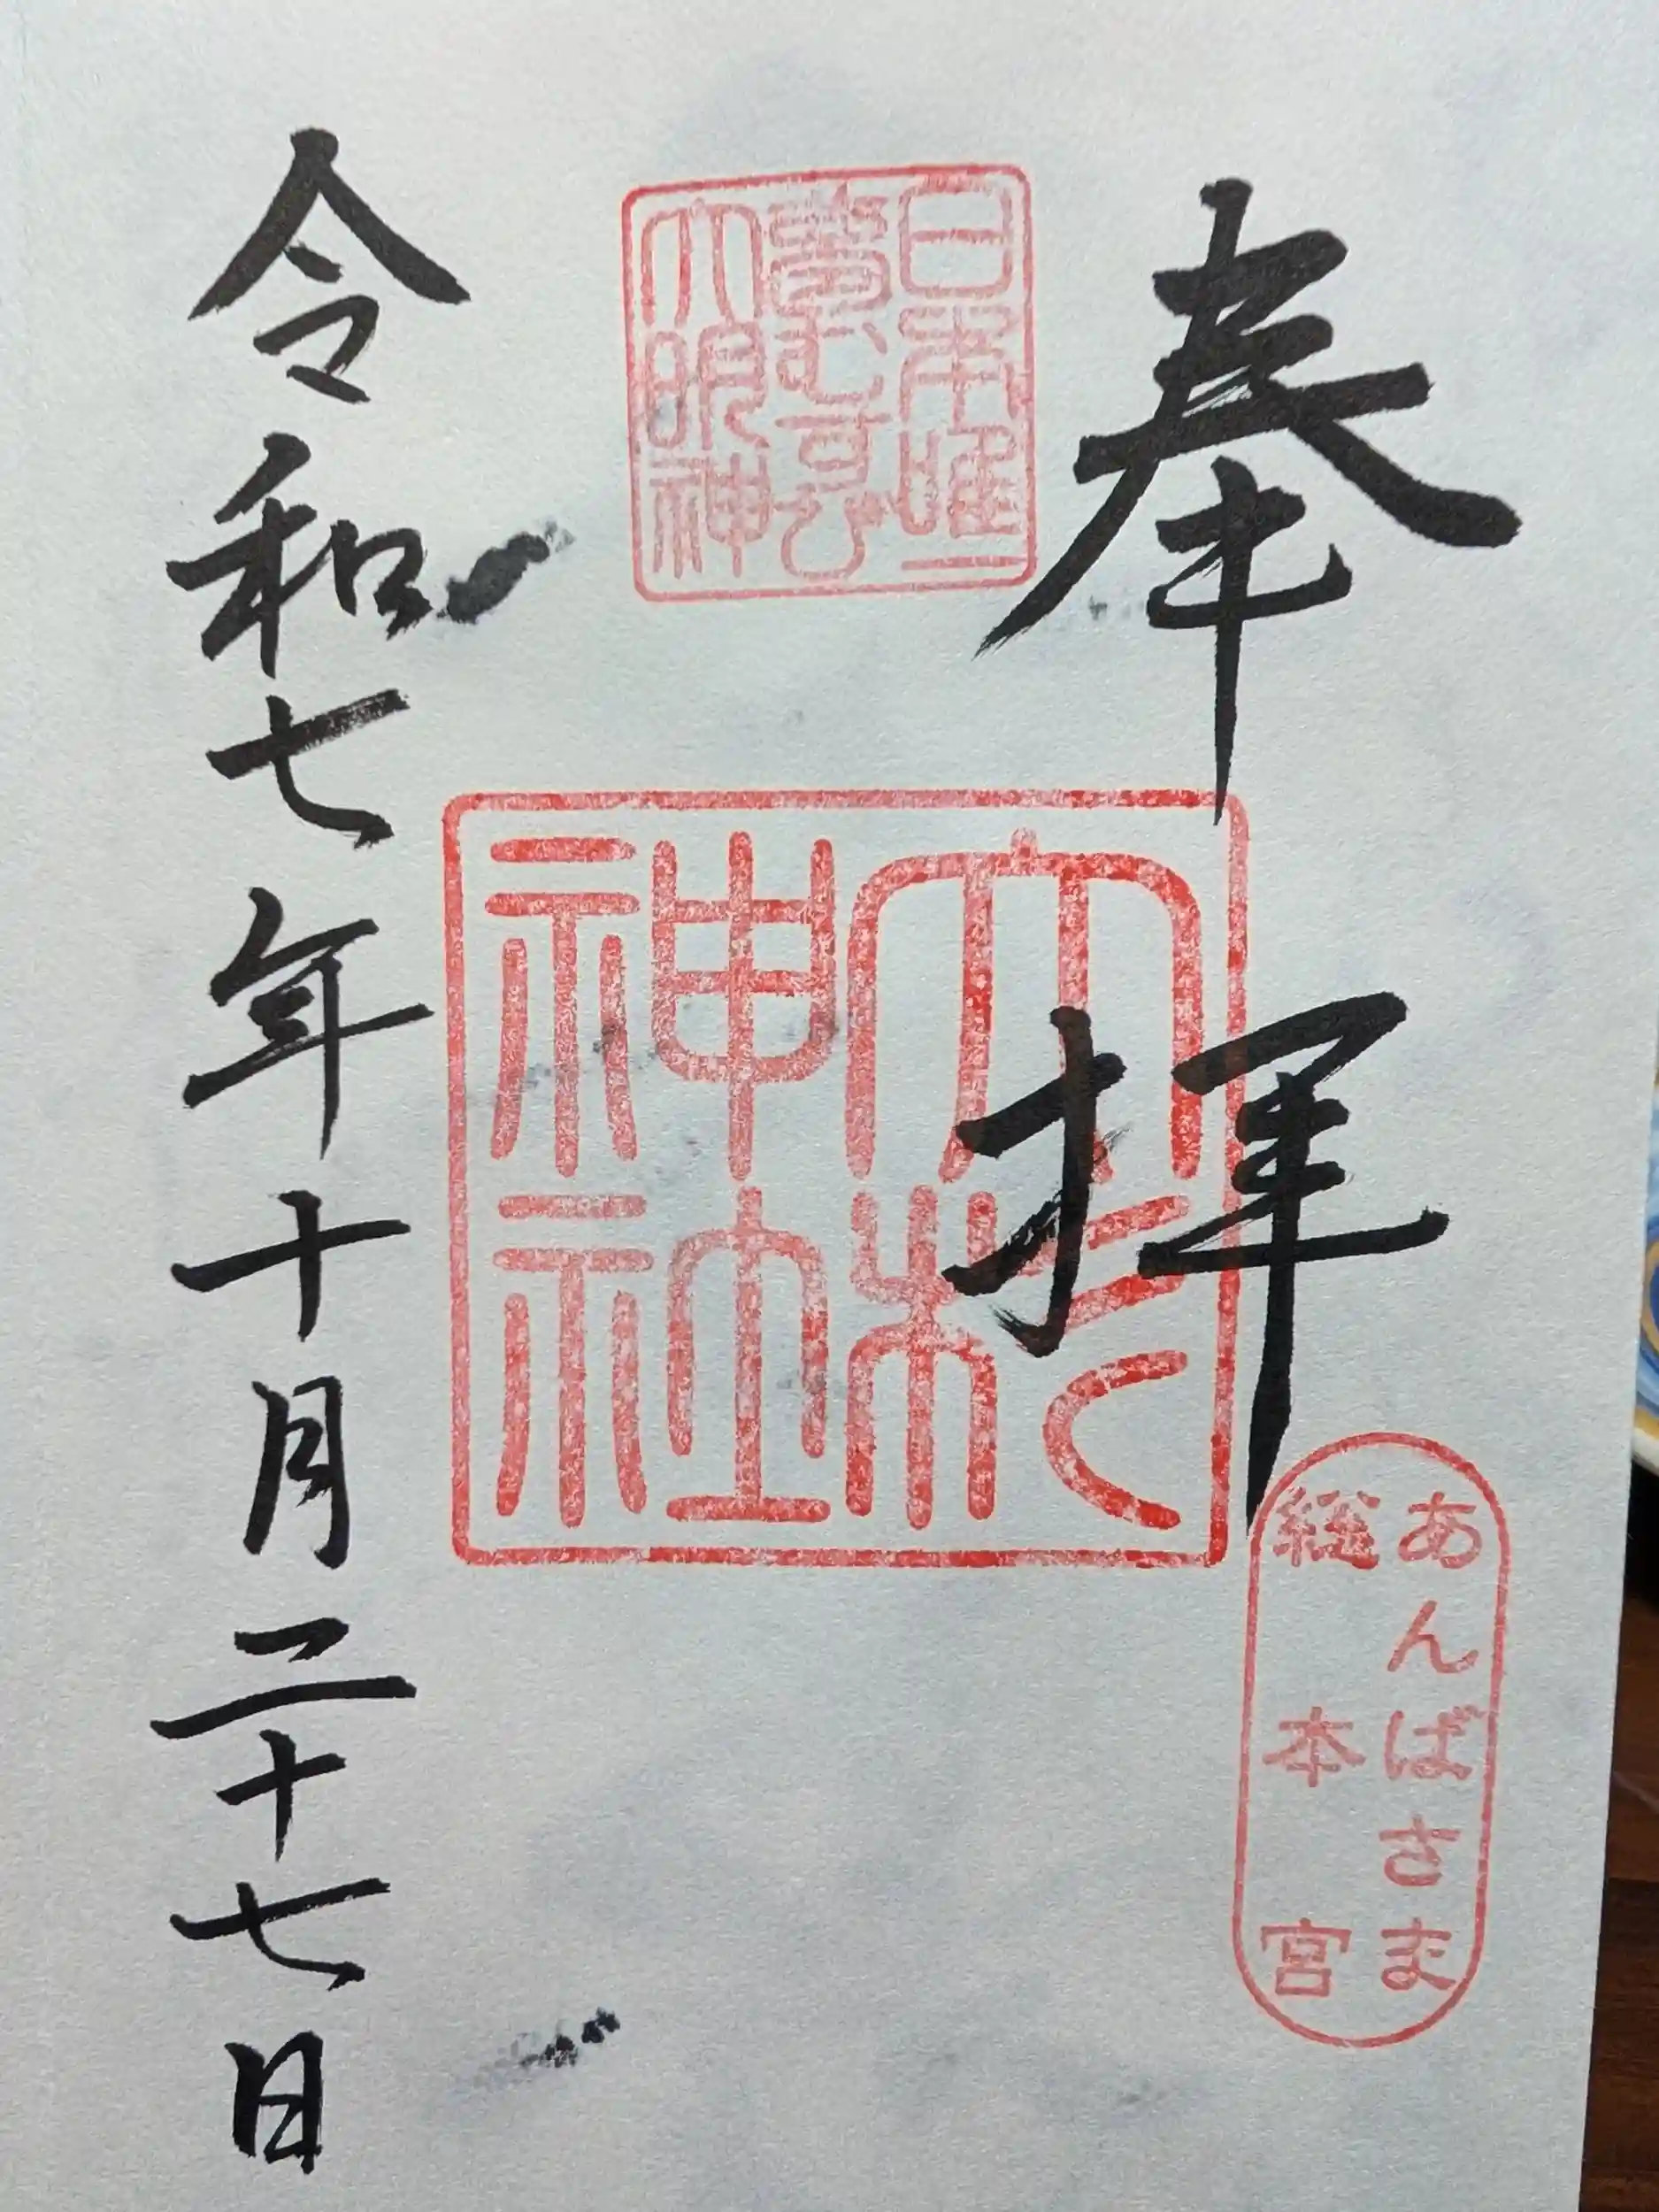 奉拝
あんばさま
総本宮
日本唯一
夢むすび
大明神
大杉
神社
令和七年十月二十七日